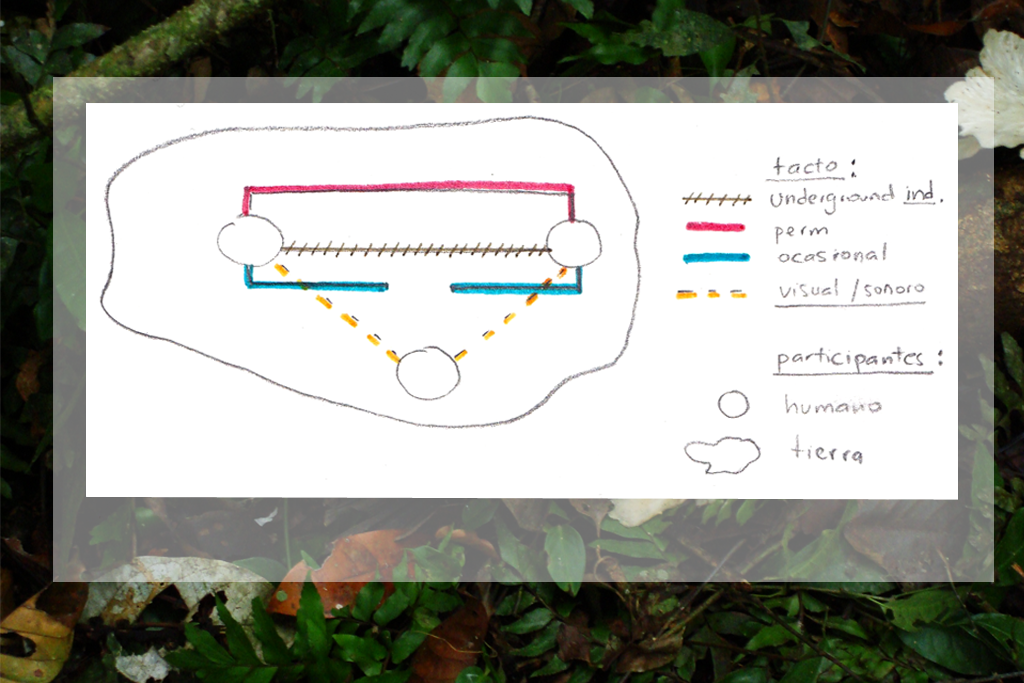 tacto:
underground ind.
perm
ocasional
visual / sonoro
participantes:
humano
tierra